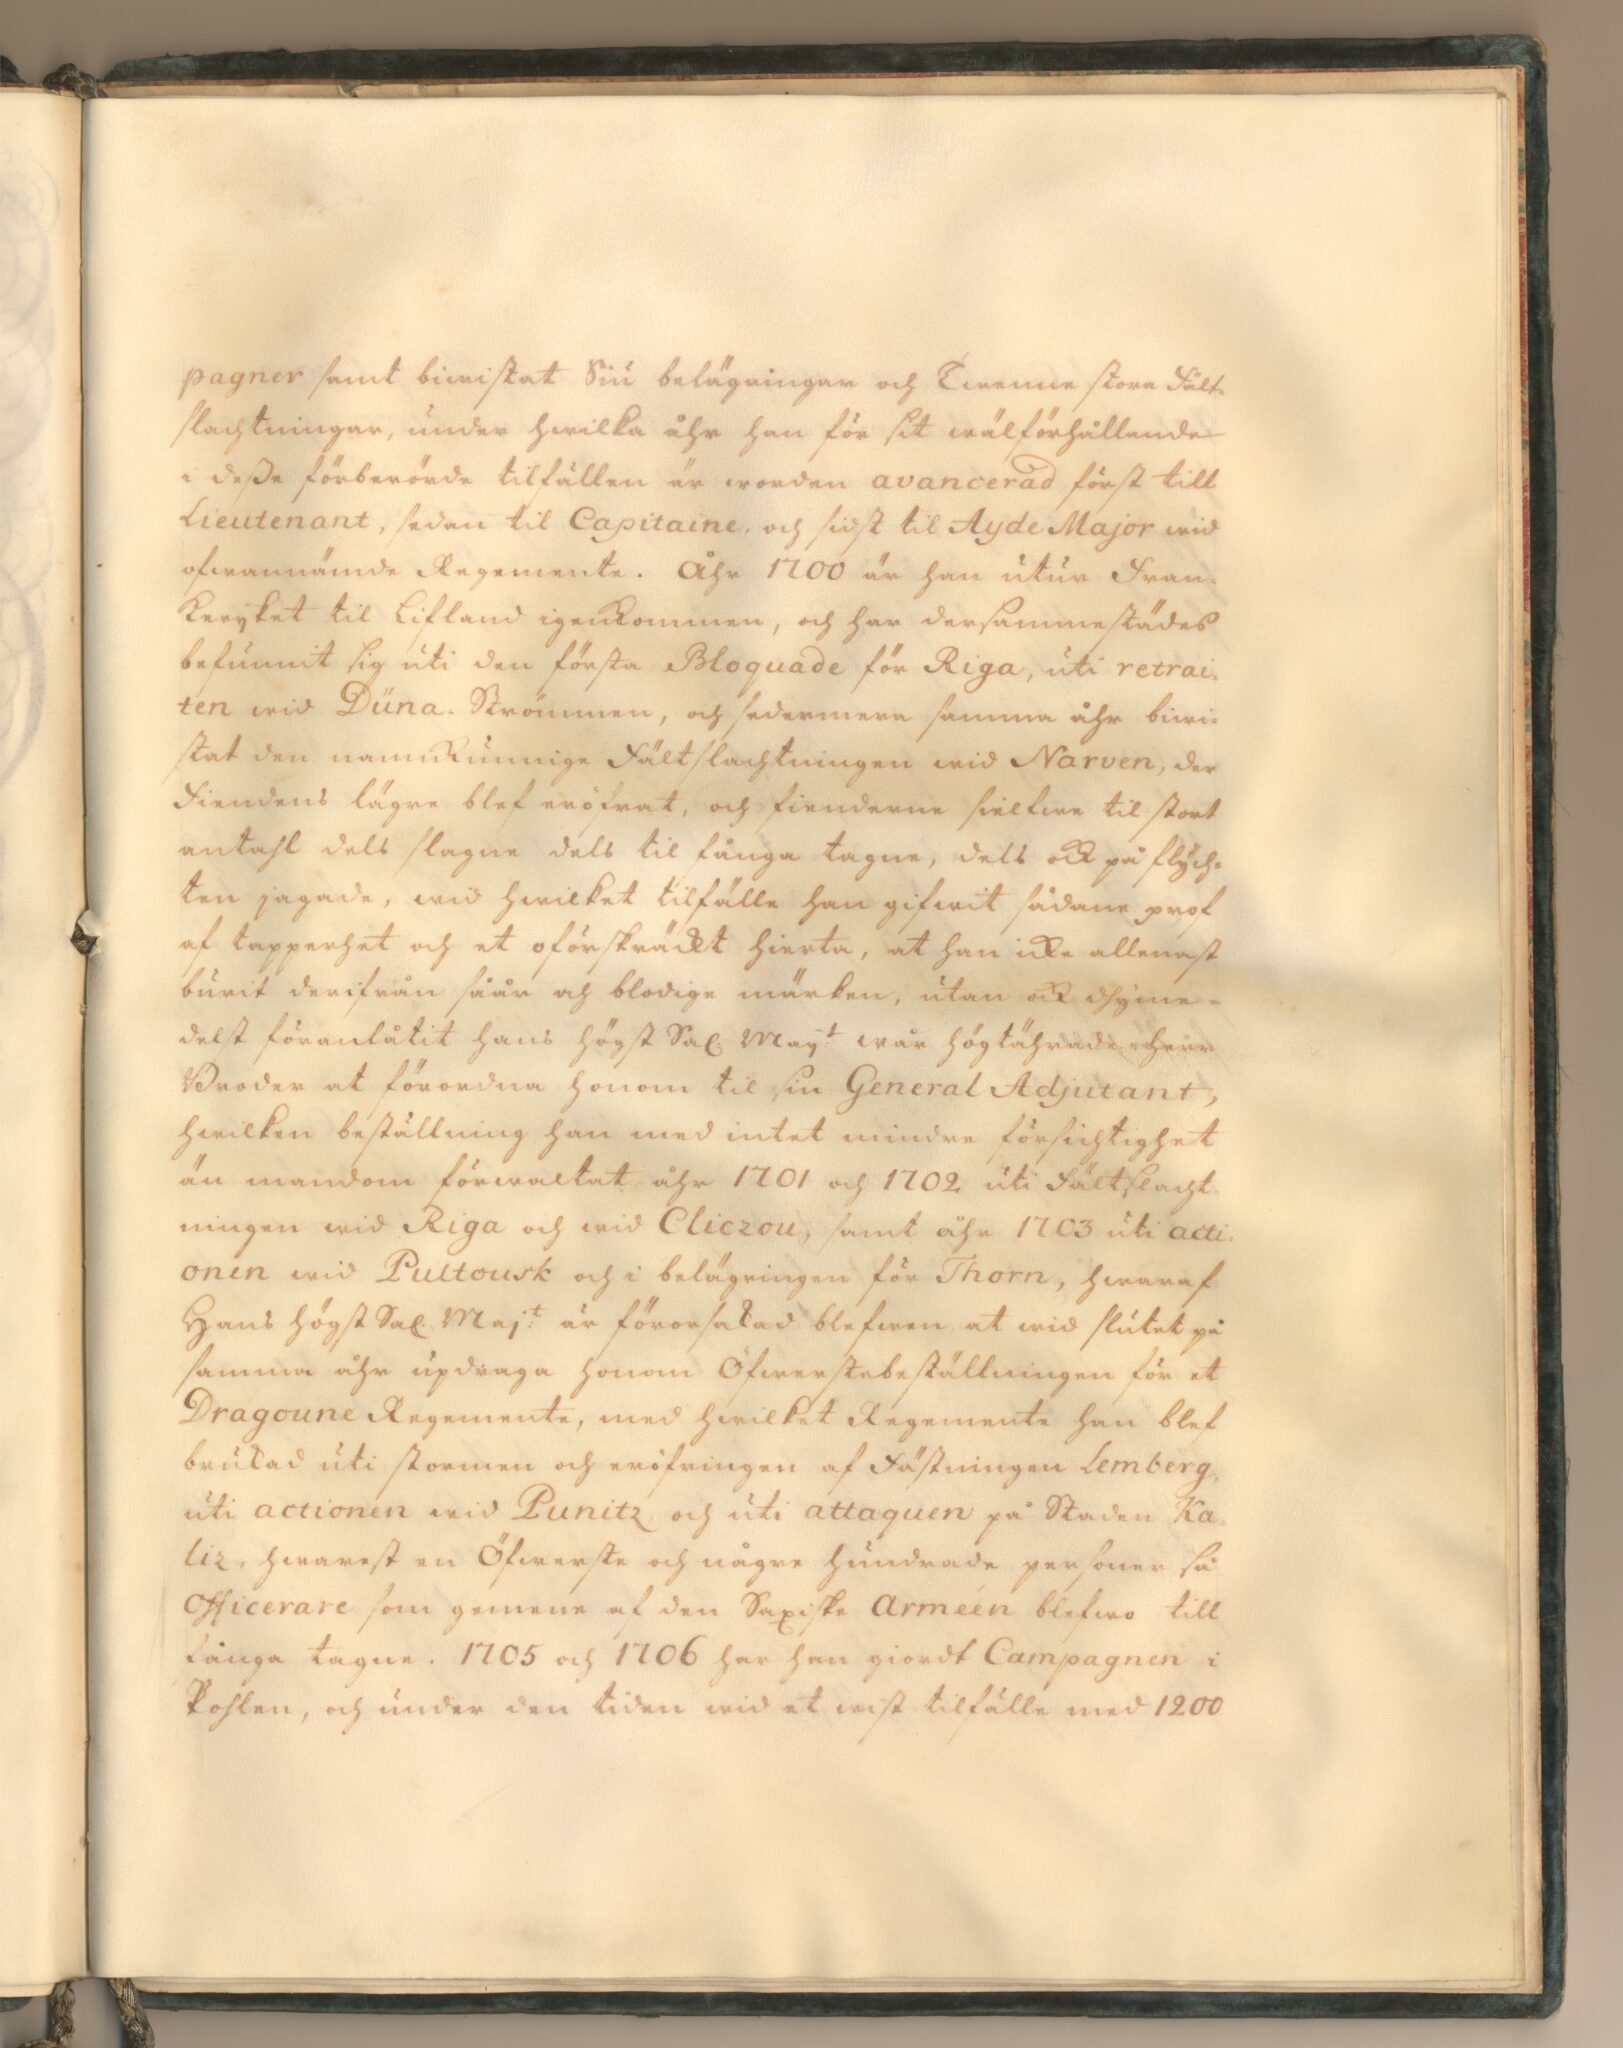 pagner samt biwistat Siu belägringar och Twenne stora Fält-
slachtningar, under hwilka åhr han för sit wälförhållande
i deße förberörde tilfällen är worden avancerad först till
Lieutenant, sedan til Capitaine, och sidst til Ayde Major wid
ofwannämde Regemente. Åhr 1700 är han utur Fran-
keryket til Lifland igenkommen, och har dersammestädes
befunnit sig uti den första Bloquade för Riga, uti retrai-
ten wid Düna-Strömmen, och sedermera samma åhr biwi-
stat den namnkunnige Fältslachtningen wid Narven, der
Fiendens lägre blef eröfrat, och fienderne sielfwe til stort
antahl dels slagne dels til fånga tagne, dels ock på flych-
ten jagade, wid hwilket tilfälle han gifwit sådane prof
af tapperhet och et oförskräckt hierta, at han icke allenast
burit derifrån såår och blodige märken, utan ock dhyme-
delst föranlåtit hans högst Sal. Mayt. wår högtährade Herr
Broder at förordna honom til sin General Adjutant,
hwilken beställning han med intet mindre försichtighet
än mandom förwaltat åhr 1701 och 1702 uti Fältslacht-
ningen wid Riga och wid Cliczou, samt åhr 1703 uti acti-
onen wid Pultousk och i belägringen för Thorn, hwaraf
Hans högst Sal. Majt. är förorsakad blefwen at wid slutet på
samma åhr updraga honom Öfwerstebeställningen för et
Dragoune Regemente, med hwilket Regemente han blef
brukad uti stormen och eröfringen af Fästningen Lemberg,
uti actionen wid Punitz och uti attaquen på Staden Ka-
liz, hwarest en Öfwerste och någre hundrade personer så
Officerare som gemene af den Saxiske Arméen blefwo till
fånga tagne. 1705 och 1706 har han giordt Campagnen i
Pohlen, och under den tiden wid et wist tilfälle med 1200